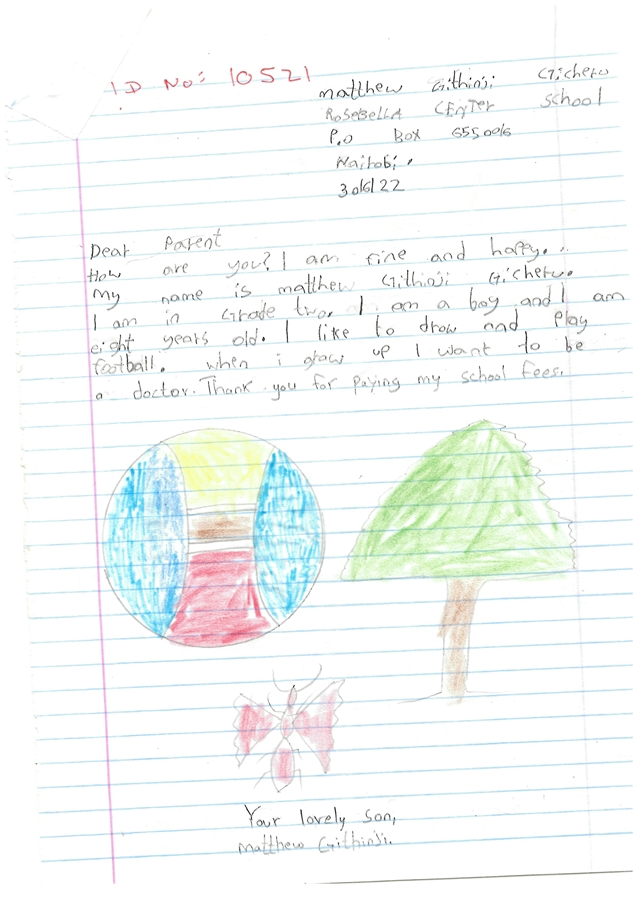 ID No: 10521
matthew Githinji Gicheru
ROSEBELLA CENTER School
P.o Box 655006
Nairobi.
30/6/22
Dear Parent
How are you? I am fine and happy..
My name is matthew Githinji Gicheru.
I am in Grade two. I am a boy and I am
eight years old. I like to drow nad Play
football. when i grow up I want to be
a doctor. Thank you for paying my school fees.
Your lovely son,
matthew Githinji.